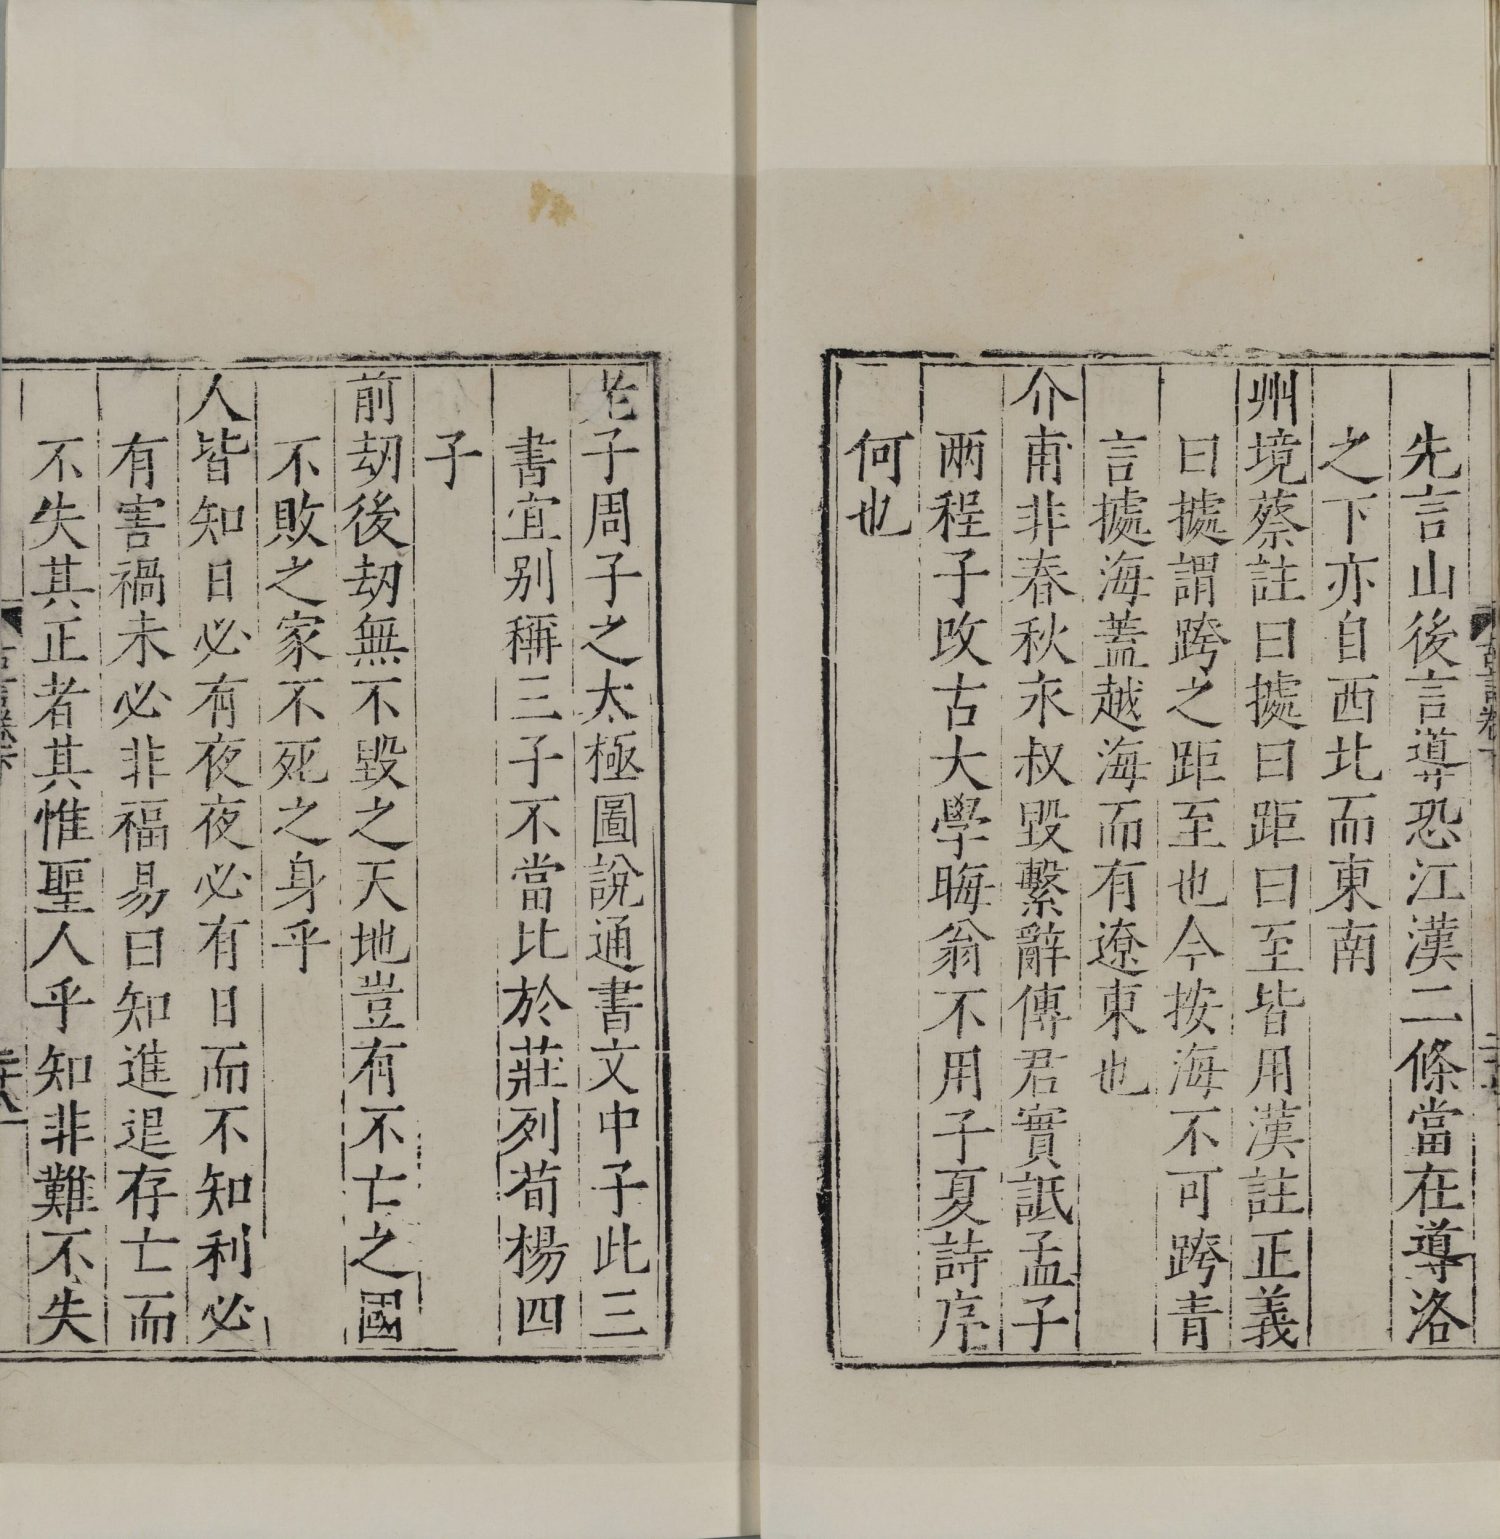 先言山後言導恐江漢二條當在導洛
之下亦自西北而東南
州境蔡註曰據曰距曰至皆用漢註正義
曰據謂跨之距至也今按海不可跨青
言據海蓋越海而有遼東也
介甫非春秋永叔毀繫辭傳君實詆孟子
兩程子攺古大學晦翁不用子夏詩序
何也
老子周子之太極圖說通書文中子此三
書宜别稱三子不當比於莊列荀楊四
子
前刼後刼無不毀之天地豈有不亡之國
不敗之家不死之身乎
人皆知日必有夜夜必有日而不知利必
有害禍未必非福易曰知進退存亡而
不失其正者其惟聖人乎知非難不失